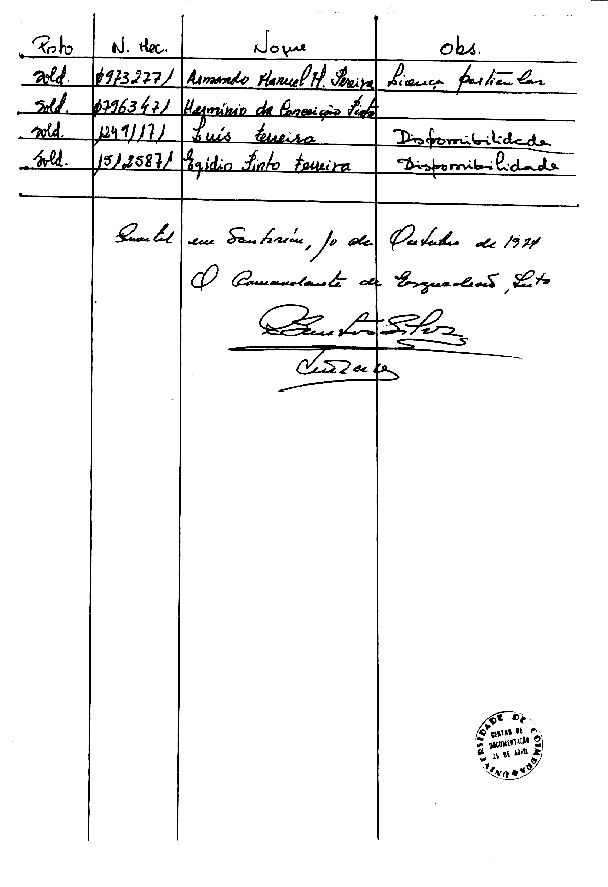 Posto N. Mec. Nome Obs.
Sold. 0973277/ Armando Manuel M. Pereira Licença particular
Sold. 0796347/ Herminio da Conceição Pinto
Sold. 12491171 Luís Ferreira Disponibilidade
Sold. 15125871 Egidio Pinto Ferreira Disponibilidade
Quartel em Santarém, 10 de Outubro de 1974
O Comandante de Esquadrão,
Silva
UNIVERSIDADE DE COIMBRA
CENTRO DE
DOCUMENTAÇÃO
25 DE ABRIL